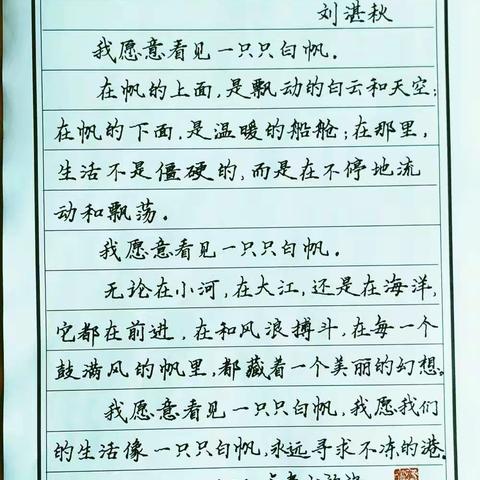 刘湛秋
我愿意看见一只只白帆。
在帆的上面,是飘动的白云和天空;
在帆的下面,是温暖的船舱;在那里,
生活不是僵硬的,而是在不停地流
动和飘荡。
我愿意看见一只只白帆。
无论在小河,在大江,还是在海洋,
它都在前进,在和风浪搏斗,在每一个
鼓满风的帆里,都藏着一个美丽的幻想。
我愿意看见一只只白帆,我愿我们
的生活像一只只白帆,永远寻求不冻的港。